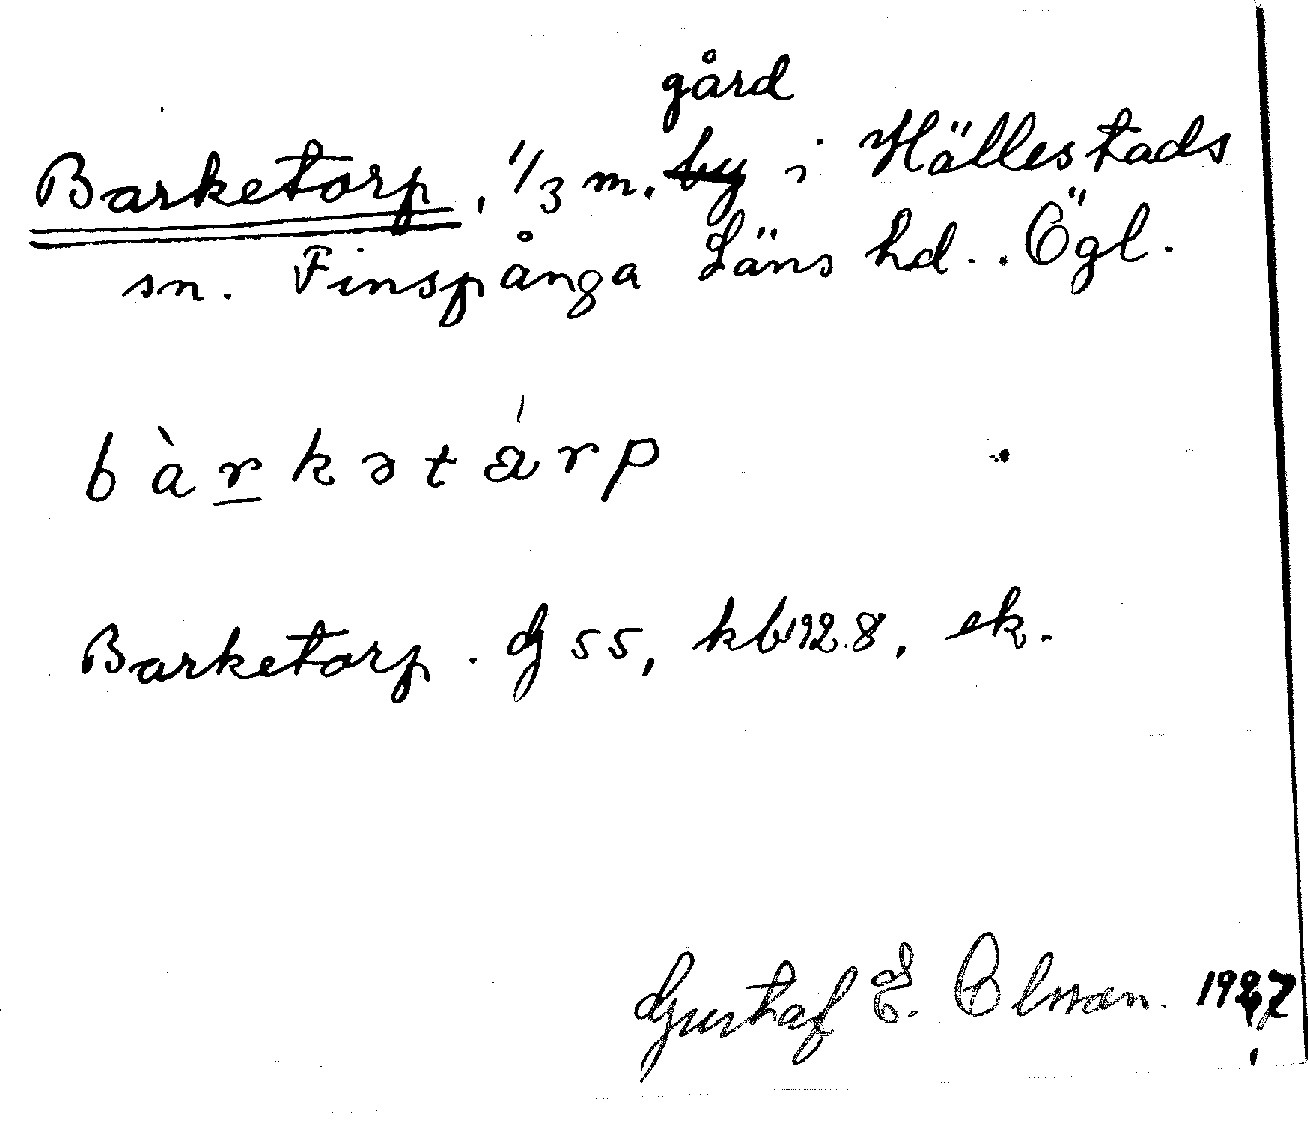 gård
Barketorp, 1/3 m. by i Hällestads
sn. Finspånga Läns hd. Ögl.
bàrkətárp
Barketorp. G 55, kb 1928, ek.
Gustaf E. Olsson. 1927